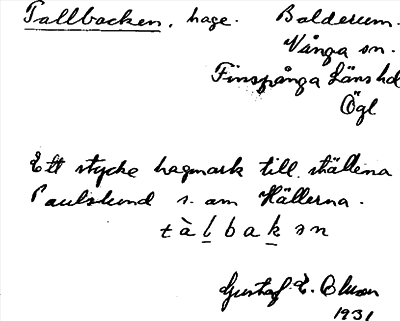 Tallbacken, hage. Balderum.
Vånga sn.
Finspånga Läns hd
Ögl
Ett stycke hagmark till ställena
Paulslund s. om Hällerna.
tàl̲bak̲ən
Gustaf E. Olsson
1931